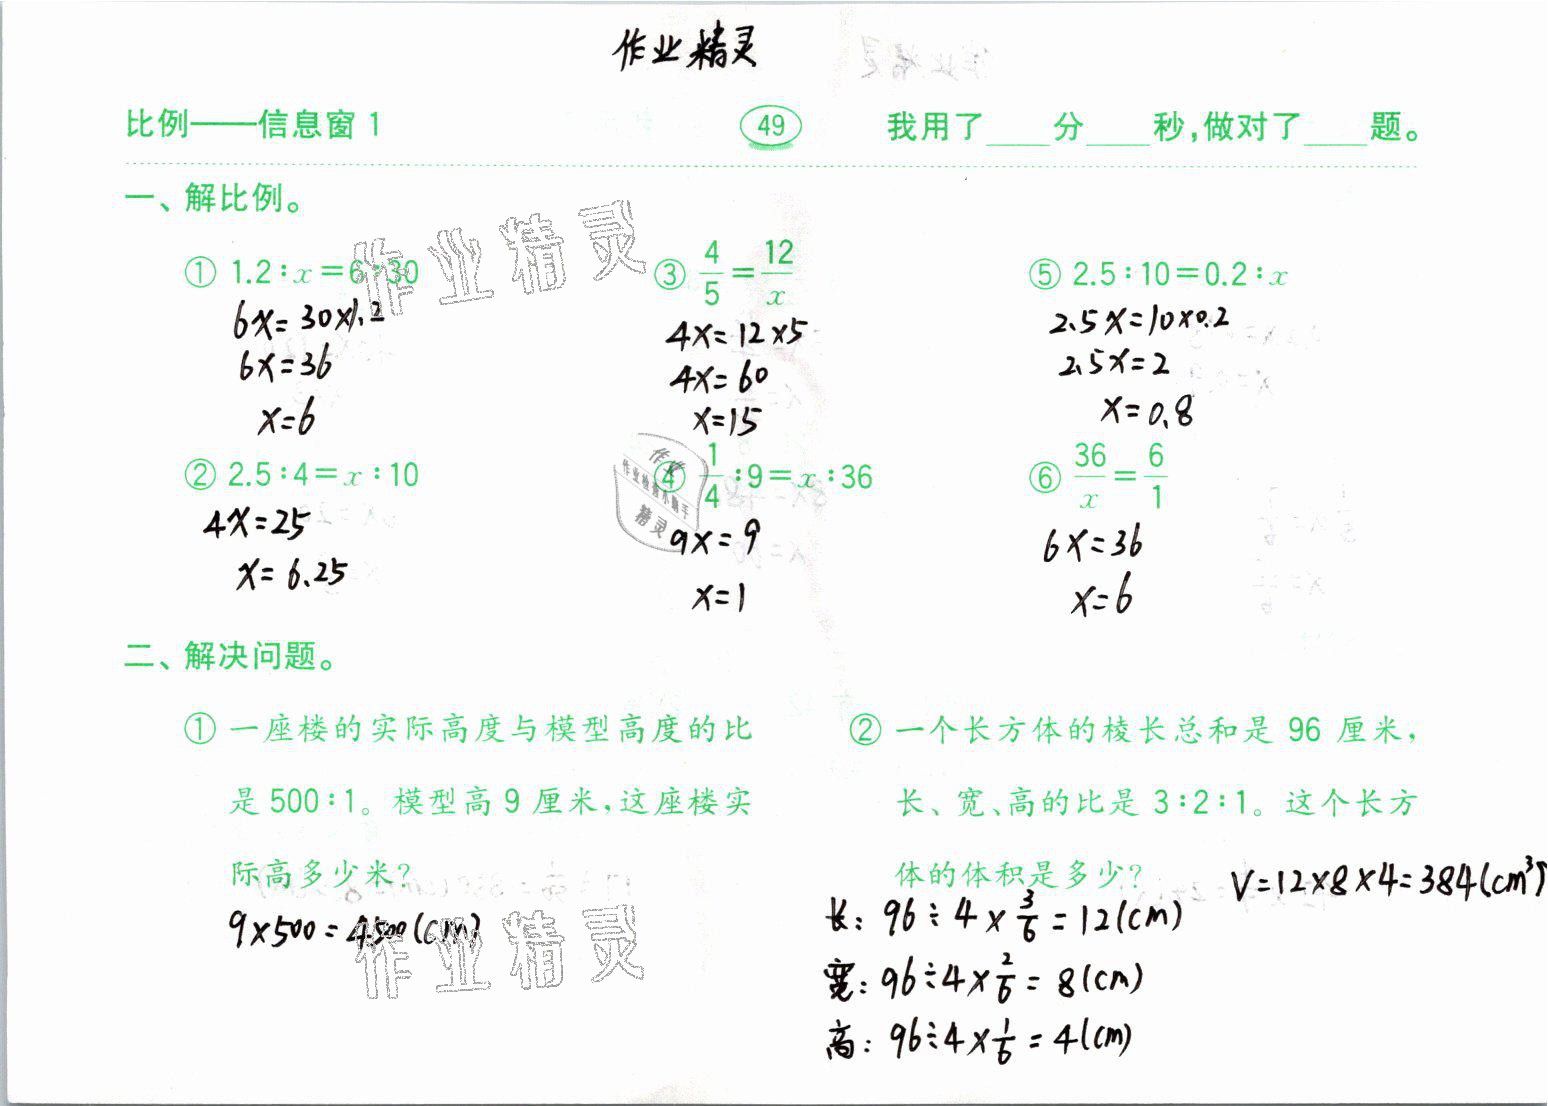 作业精灵
比例——信息窗1 49 我用了____分____秒,做对了____题。
一、解比例。
① 1.2∶x=6∶30
6x=30×1.2
6x=36
x=6
② 2.5∶4=x∶10
4x=25
x=6.25
③ 4/5=12/x
4x=12×5
4x=60
x=15
④ 1/4∶9=x∶36
9x=9
x=1
⑤ 2.5∶10=0.2∶x
2.5x=10×0.2
2.5x=2
x=0.8
⑥ 36/x=6/1
6x=36
x=6
二、解决问题。
① 一座楼的实际高度与模型高度的比
是500∶1。模型高9厘米,这座楼实
际高多少米?
9×500=4500(cm)
② 一个长方体的棱长总和是96厘米,
长、宽、高的比是3∶2∶1。这个长方
体的体积是多少?
长:96÷4×3/6=12(cm)
宽:96÷4×2/6=8(cm)
高:96÷4×1/6=4(cm)
V=12×8×4=384(cm³)
作业精灵
作业
作业检查小助手
精灵
作业精灵